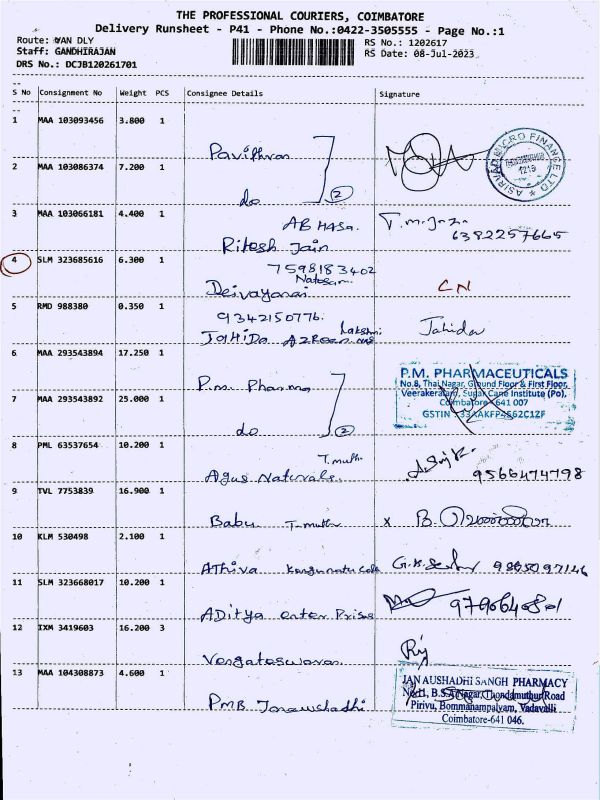 THE PROFESSIONAL COURIERS, COIMBATORE
Delivery Runsheet - P41 - Phone No.:0422-3505555 - Page No.:1
Route: VAN DLY
Staff: GANDHIRAJAN
DRS No.: DCJB120261701
RS No.: 1202617
RS Date: 08-Jul-2023
S No Consignment No Weight PCS Consignee Details Signature
1 MAA 103093456 3.800 1
Pavithran
2 MAA 103086374 7.200 1
do 2
ASIRVAD MICRO FINANCE LTD
3 MAA 103066181 4.400 1
Ritesh Jain
6382257665
4 SLM 323685616 6.300 1
7598183402
Deivayanai
CN
5 RMD 988380 0.350 1
9342150776.
Lakshmi
Jahida
6 MAA 293543894 17.250 1
P.m. Pharma
7 MAA 293543892 25.000 1
do 2
P.M. PHARMACEUTICALS
No.8, Thai Nagar, Ground Floor & First Floor,
Veerakeralam, Sugar Cane Institute (Po),
Coimbatore-641 007
GSTIN : 33AAKFP4562C1ZF
8 PML 63537654 10.200 1
T.muth
Agus Naturals.
9566474798
9 TVL 7753839 16.900 1
Babu T.muthu x B.
10 KLM 530498 2.100 1
Athiva
11 SLM 323668017 10.200 1
ADitya enter Prises
12 IXM 3419603 16.200 3
Vengateswaran
13 MAA 104308873 4.600 1
PMB Janawshadhi
JAN AUSHADHI SANGH PHARMACY
No:11, B.S.A Nagar, Thondamuthur Road
Pirivu, Bommanampalyam, Vadavalli
Coimbatore-641 046.